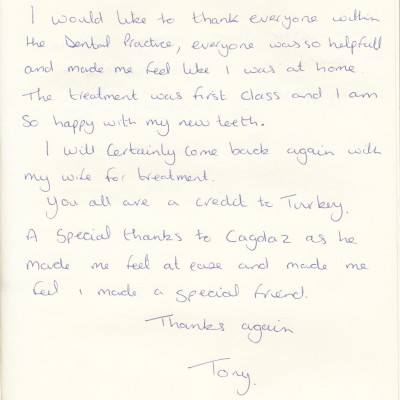 I would like to thank everyone within
the Dental Practice, everyone was so helpfull
and made me feel like I was at home.
The treatment was first class and I am
so happy with my new teeth.
I will certainly come back again with
my wife for treatment.
You all are a credit to Turkey.
A special thanks to Cagdaz as he
made me feel at ease and made me
feel i made a special friend.
Thanks again
Tony.